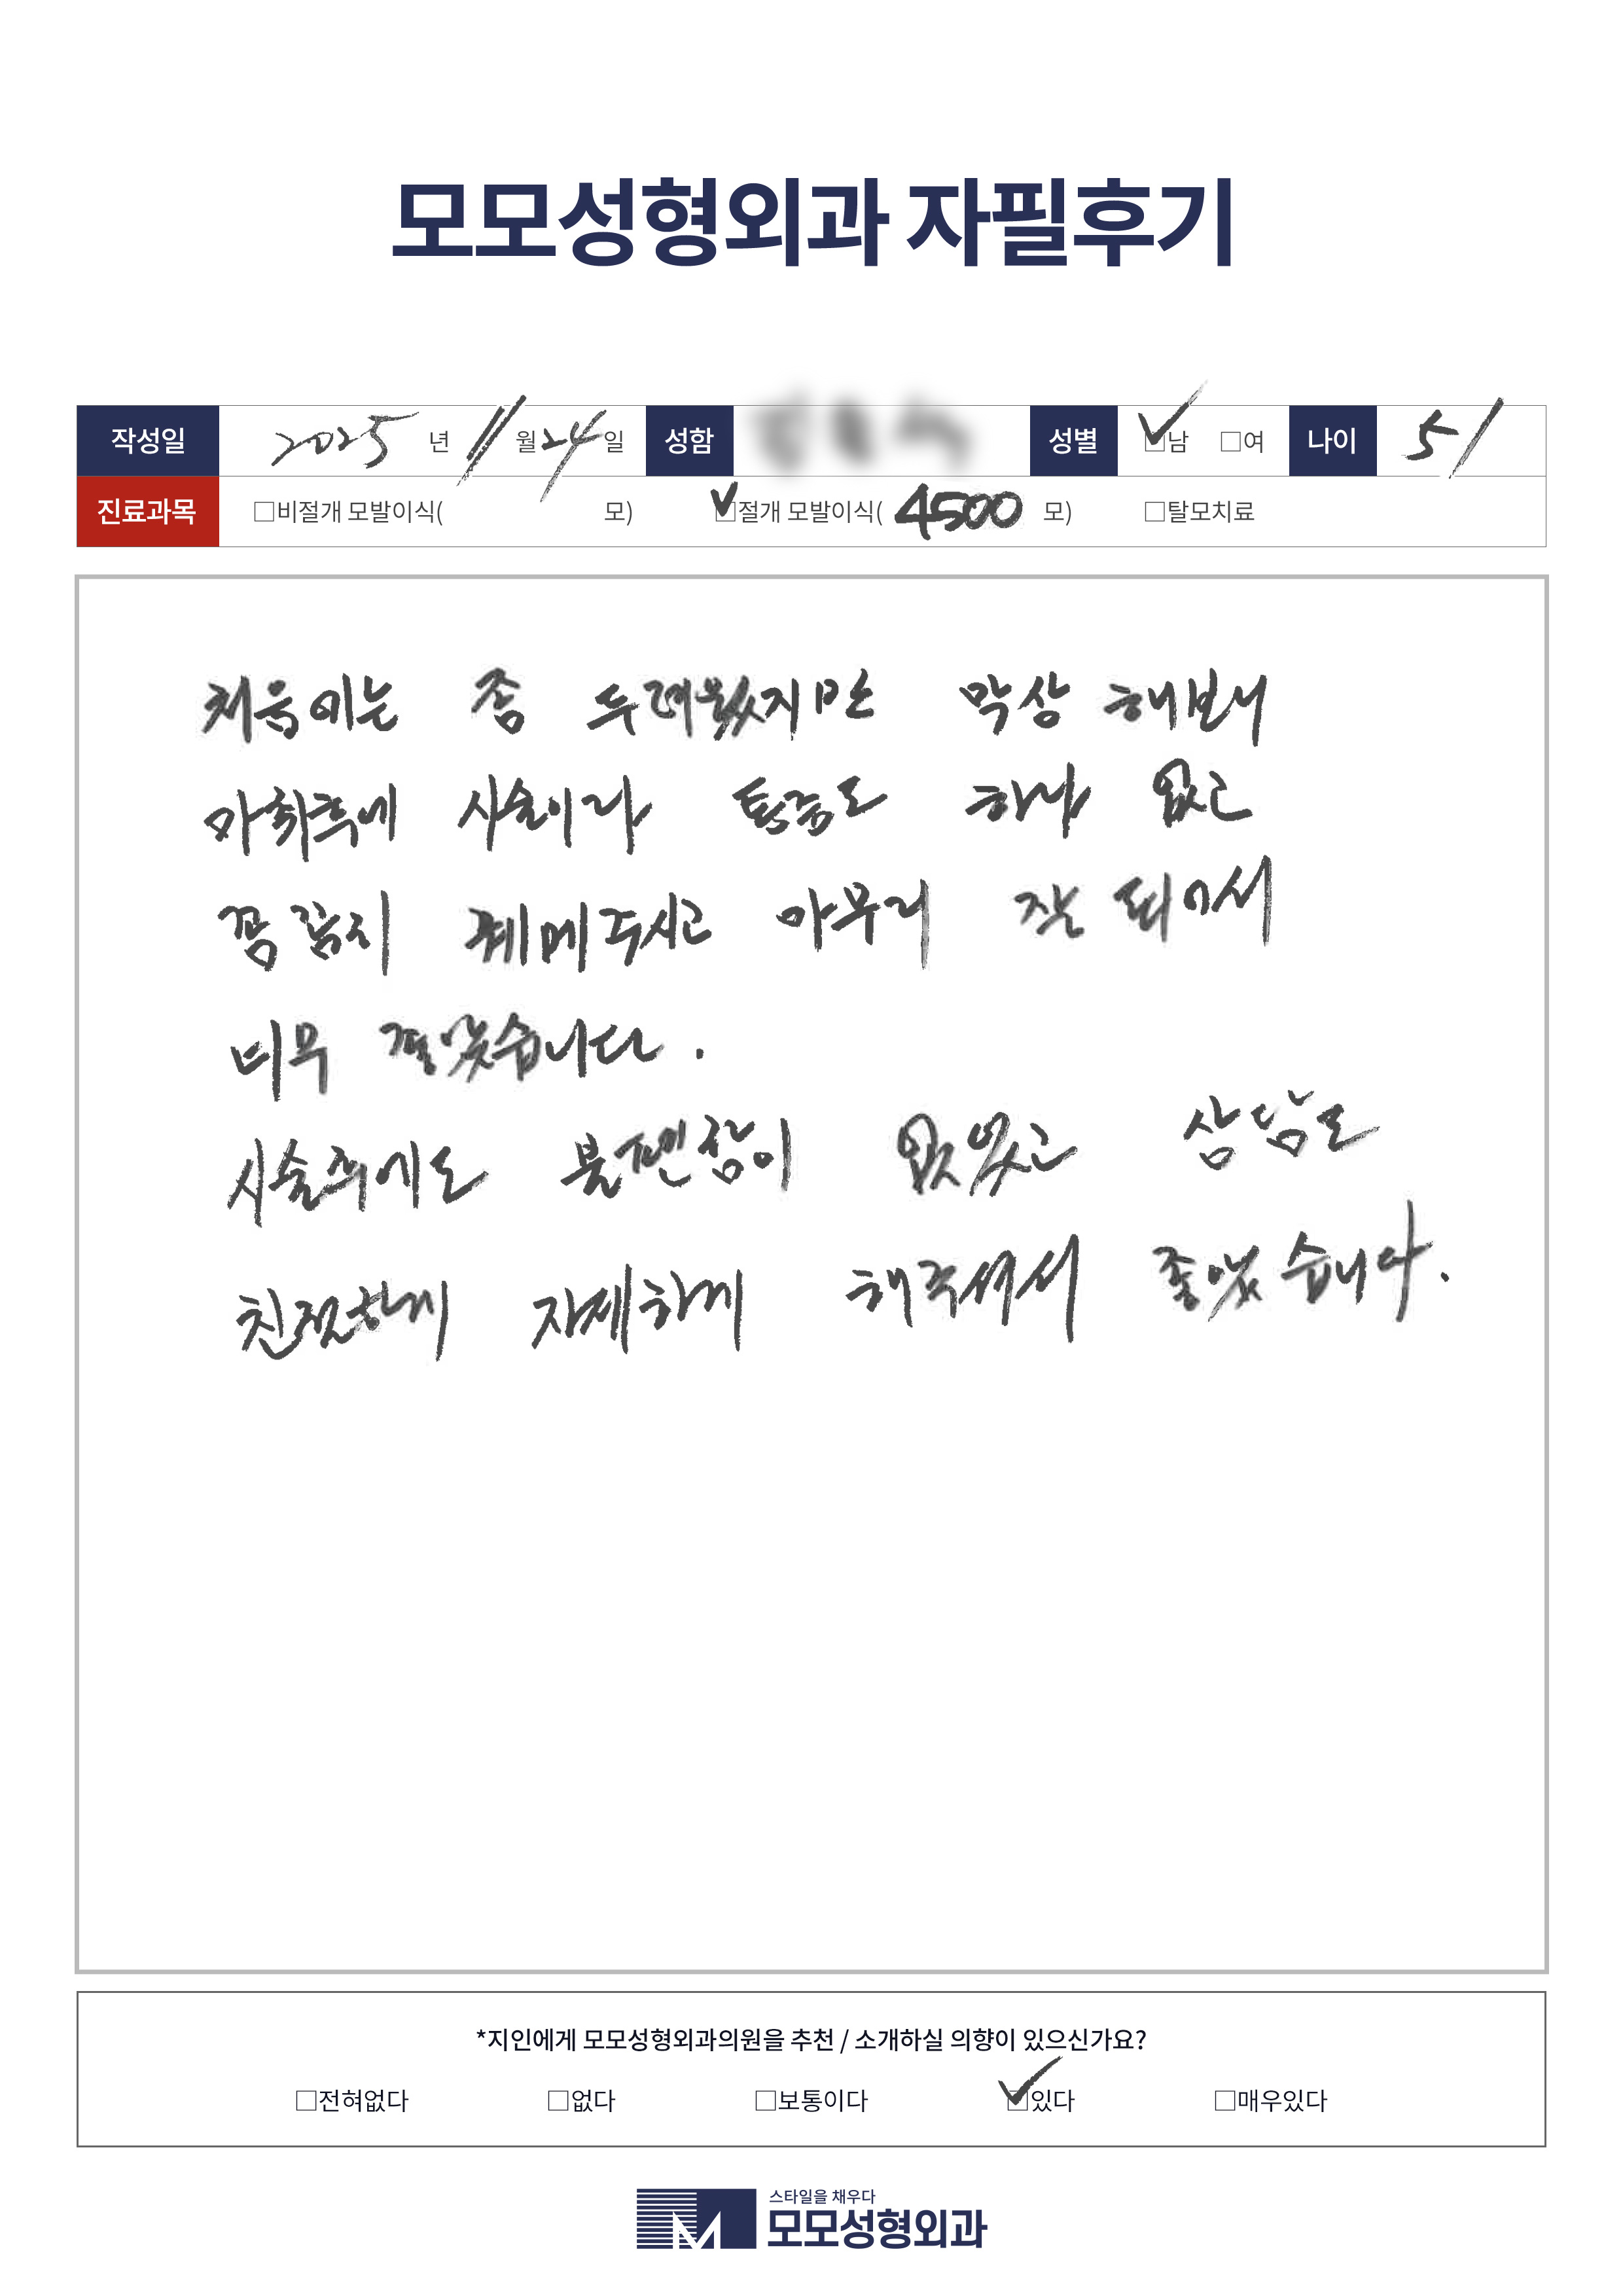 모모성형외과 자필후기
작성일 2025 년 11 월 24 일 성함 성별 □남 □여 나이 51
진료과목 □비절개 모발이식( 모) □절개 모발이식( 4500 모) □탈모치료
처음에는 좀 두려웠지만 막상 해보니
마취후에 시술이라 통증도 하나 없고
꼼꼼히 꿰메주시고 마무리 잘 되어서
너무 좋았습니다.
시술후에도 불편함이 없었고 상담도
친절하게 자세하게 해주셔서 좋았습니다.
*지인에게 모모성형외과의원을 추천 / 소개하실 의향이 있으신가요?
□전혀없다 □없다 □보통이다 □있다 □매우있다
스타일을 채우다
모모성형외과